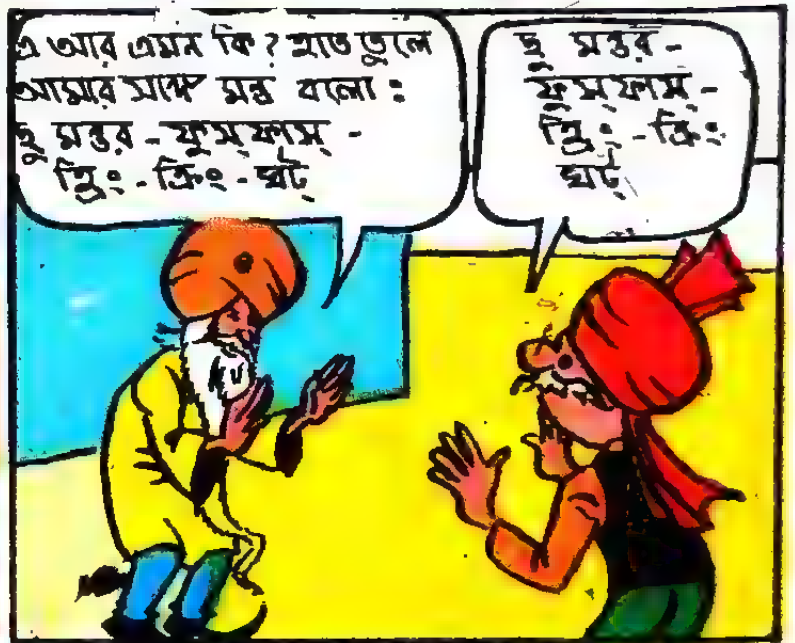 এ আর এমন কি? হাত তুলে
আমার সঙ্গে মন্ত্র বলো:
ছু মন্তর - ফুস্ ফাস্ -
হ্রিং - ক্রিং - ঘট্
ছু মন্তর -
ফুস্ ফাস্ -
হ্রিং - ক্রিং -
ঘট্